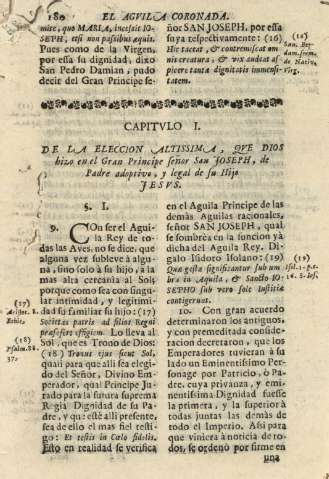 180 EL AGVILA CORONADA.
mire, quo MARIA, incessit IO-
SEPH, etsi non passibus aquis.
Pues como de la Virgen,
por essa su dignidad, dixo
San Pedro Damian, pudo
decir del Gran Principe se-
ñor SAN JOSEPH, por essa
suya respectivamente: (16)
Hic taceat, & contremiscat om-
nis creatura, & vix audeat as-
picere tanta dignitatis immensi-
tatem.
(16)
San. Petr.
Dam. serm.
de Nativ.
Virg.
CAPITVLO I.
DE LA ELECCION ALTISSIMA, QVE DIOS
hizo en el Gran Principe señor San JOSEPH, de
Padre adoptivo, y legal de su Hijo
JESVS.
§. I.
9. CON ser el Agui-
la Rey de to-
das las Aves, no se dice, que
alguna vez subleve à algu-
na, sino solo à su hijo, a la
mas alta cercania al Sol,
porque como sea con singu-
lar intimidad, y legitimi-
dad su familiar su hijo: (17)
Societas patris ad filios Regni
præ se fert effigiem. Lo lleva al
Sol, que es Trono de Dios:
(18) Tronus ejus sicut Sol,
quàn para que alli sea elegi-
do del Señor, Divino Em-
perador, qual Principe Ju-
rado para la futura supre-
ma Regia Dignidad de su Pa-
dre, y que esté alli presente,
sea de ello el mas fiel testi-
go: Et testis in Cœlo fidelis.
Esto en realidad se verifica
(17)
Aristot. 8.
Ethic.
(18)
Psalm. 88.
37.
en el Aguila Principe de las
demàs Aguilas racionales,
señor SAN JOSEPH, qual
se sombrèa en la funcion yà
dicha del Aguila Rey. Di-
galo Isidoro Isolano: (19)
Quæ gesta significantur sub um-
bra in Aquila, & Sancto IO-
SEPHO sub vero sole Iustitiæ
contigerunt.
(19)
10. Con gran acuerdo
determinaron los antiguos,
y con premeditada conside-
racion decretaron, que los
Emperadores tuvieran à su
lado un Eminentissimo Per-
sonage por Patricio, ò Pa-
dre, cuya privanza, y emi-
nentissima Dignidad fuesse
la primera, y la superior à
todas juntas las demàs de
todo el Imperio. Assi para
que viniera à noticia de to-
dos, se ordenò por firme en
una